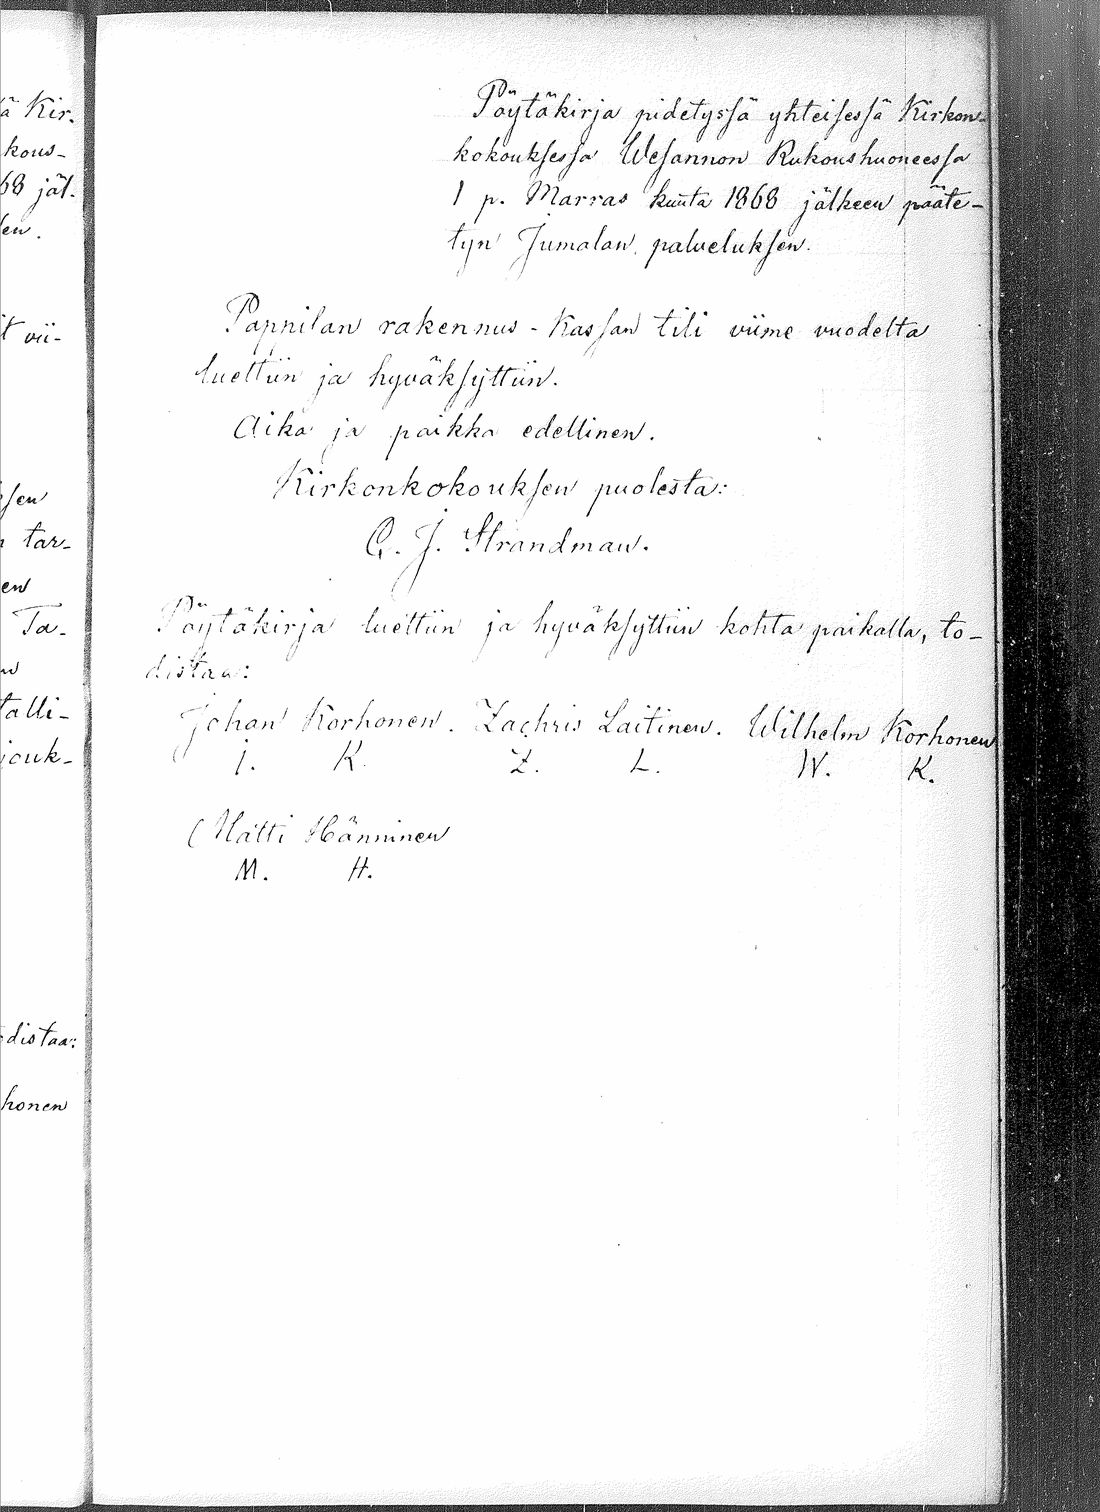 ä Kir-
kous-
68 jäl-
en.
t vii-
sen
tar-
en
Ta-
talli-
jouk-
distaa:
honen
Pöytäkirja pidetyssä yhteisessä Kirkon-
kokouksessa Wesannon Rukoushuoneessa
1 p. Marras kuuta 1868 jälkeen pääte-
tyn Jumalan palveluksen.
Pappilan rakennus-Kassan tili viime vuodelta
luettiin ja hyväksyttiin.
Aika ja paikka edellinen.
Kirkonkokouksen puolesta:
C. J. Strandman.
Pöytäkirja luettiin ja hyväksyttiin kohta paikalla, to-
distaa:
Johan Korhonen. Zachris Laitinen. Wilhelm Korhonen
J. K. Z. L. W. K.
Matti Hänninen
M. H.